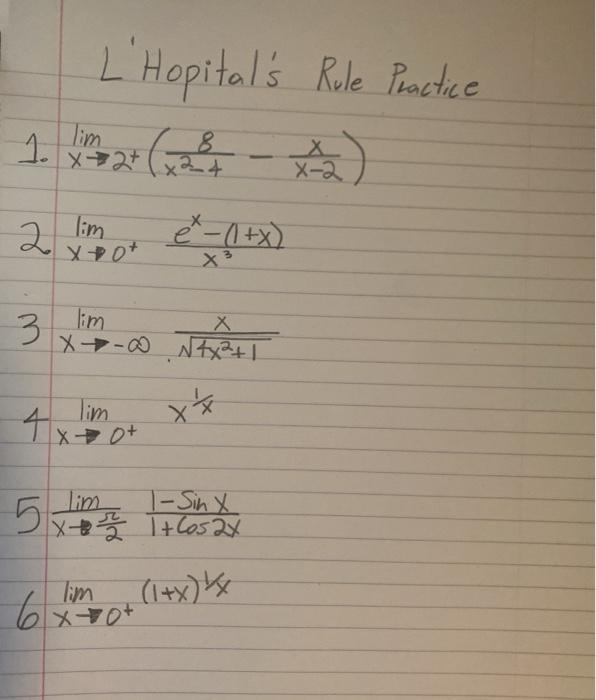 L'Hopital's Rule Practice
1. lim x→2+ (8/(x²-4) - x/(x-2))
2. lim x→0+ (e^x-(1+x))/x³
3 lim x→-∞ x/√(4x²+1)
4 lim x→0+ x^(1/x)
5 lim x→π/2 (1-Sin x)/(1+Cos 2x)
6 lim x→0+ (1+x)^(1/x)